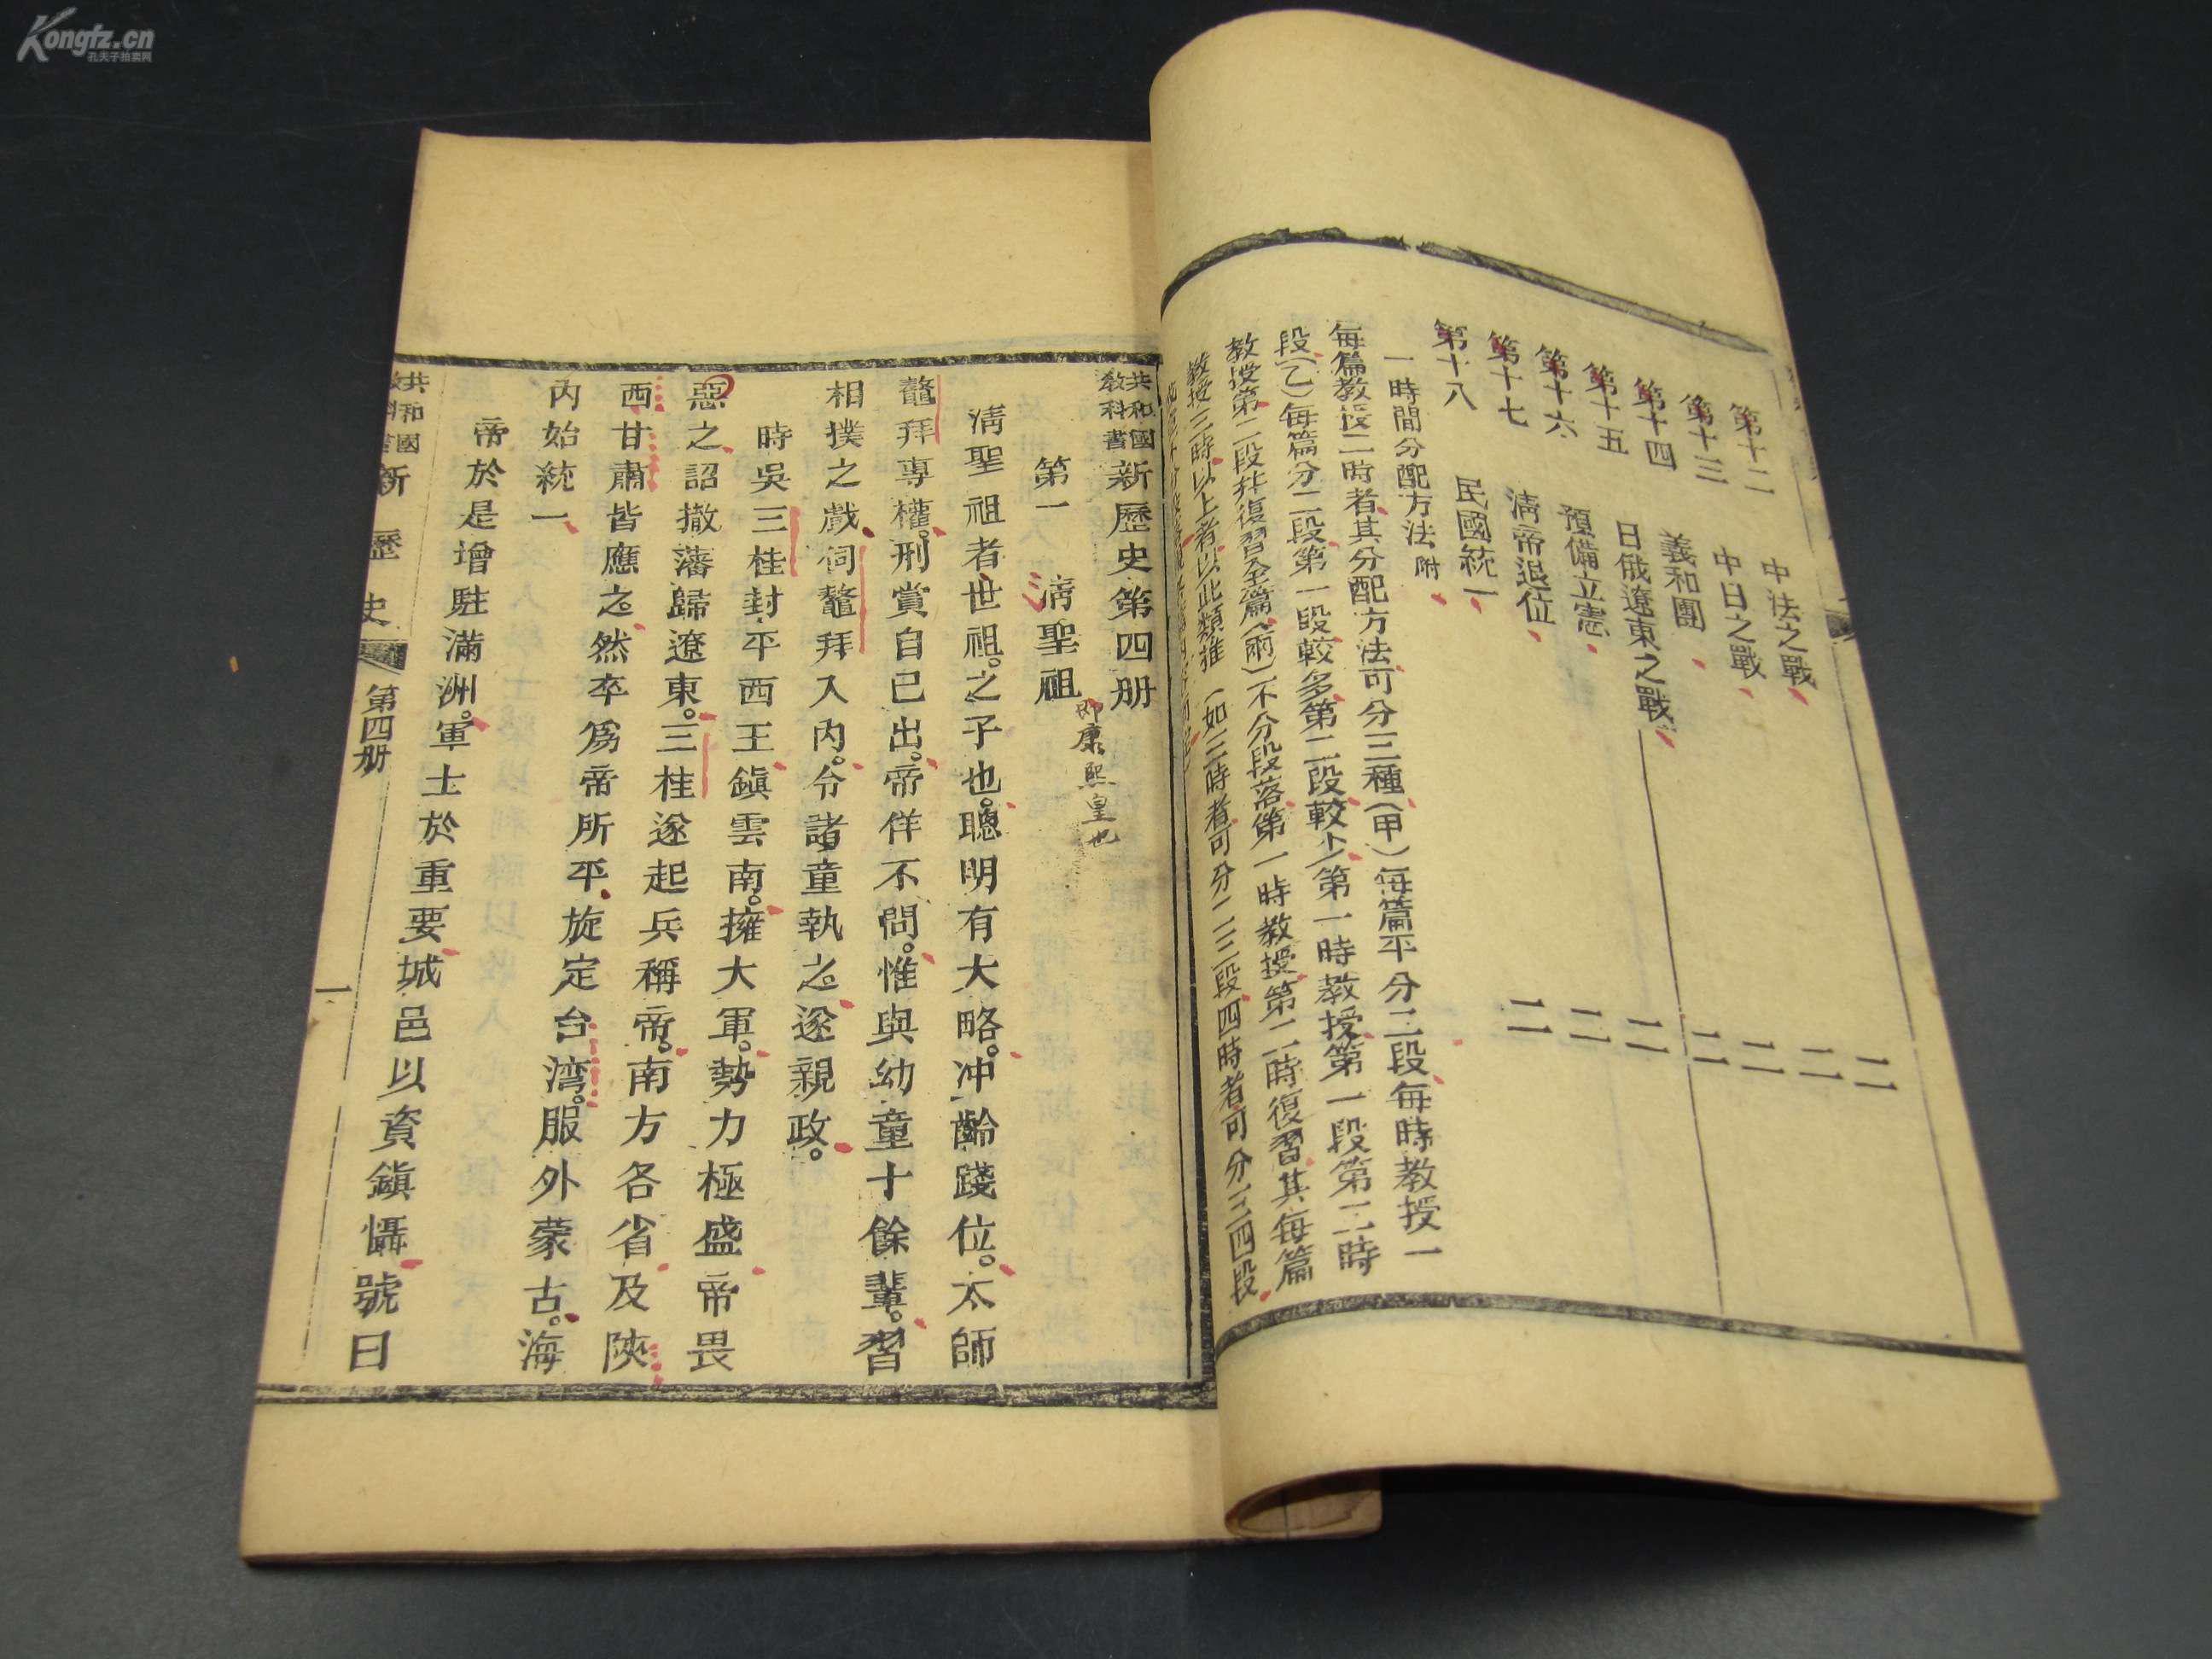 Kongfz.cn
孔夫子拍卖网
第十二　中法之戰　二
第十三　中日之戰　二
第十四　義和團　二
第十五　日俄遼東之戰　二
第十六　預備立憲　二
第十七　清帝退位　二
第十八　民國統一　二
一時間分配方法附
每篇教授二時者其分配方法可分三種(甲)每篇平分二段每時教授一
段(乙)每篇分二段第一段較多第二段較少第一時教授第一段第二時
教授第二段并復習全篇(丙)不分段落第一時教授第二時復習其每篇
教授三時以上者以此類推(如三時者可分二三段四時者可分三四段
共和國教科書新歷史第四册
第一　清聖祖
即康熙皇也
清聖祖者世祖之子也。聰明有大略。冲齡踐位。太師
鼇拜專權。刑賞自己出。帝佯不問。惟與幼童十餘輩。習
相撲之戲。伺鼇拜入內。令諸童執之。遂親政。
時吳三桂封平西王。鎭雲南。擁大軍。勢力極盛。帝畏
惡之。詔撤藩歸遼東。三桂遂起兵稱帝。南方各省及陝
西甘肅皆應之。然卒爲帝所平。旋定台湾。服外蒙古。海
內始統一。
帝於是增駐滿洲。軍士於重要城邑以資鎭懾。號曰
共和國教科書新歷史　第四册　一